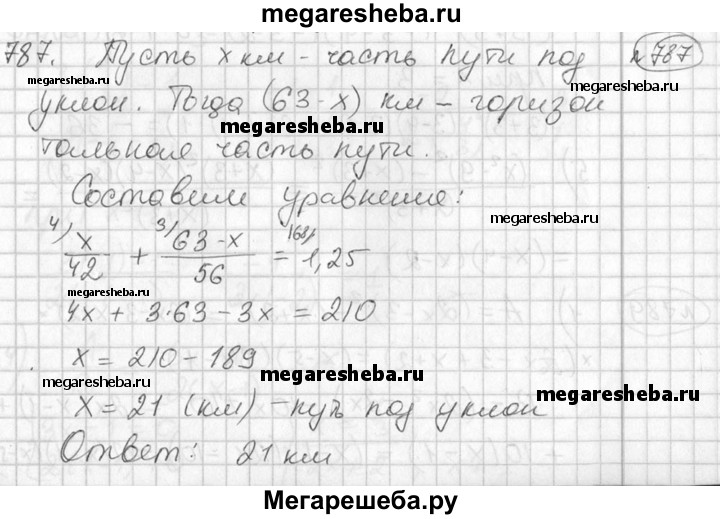 megaresheba.ru
787. Пусть x км - часть пути под
№787
megaresheba.ru
megaresheba.ru
уклон. Тогда (63-x) км - горизон
megaresheba.ru
тальная часть пути.
Составим уравнение:
megaresheba.ru
4) x/42 + 3) 63-x/56 = 168) 1,25
megaresheba.ru
4x + 3·63 - 3x = 210
x = 210 - 189
megaresheba.ru
megaresheba.ru
x = 21 (км) - путь под уклон
Ответ: 21 км
Мегарешеба.ру